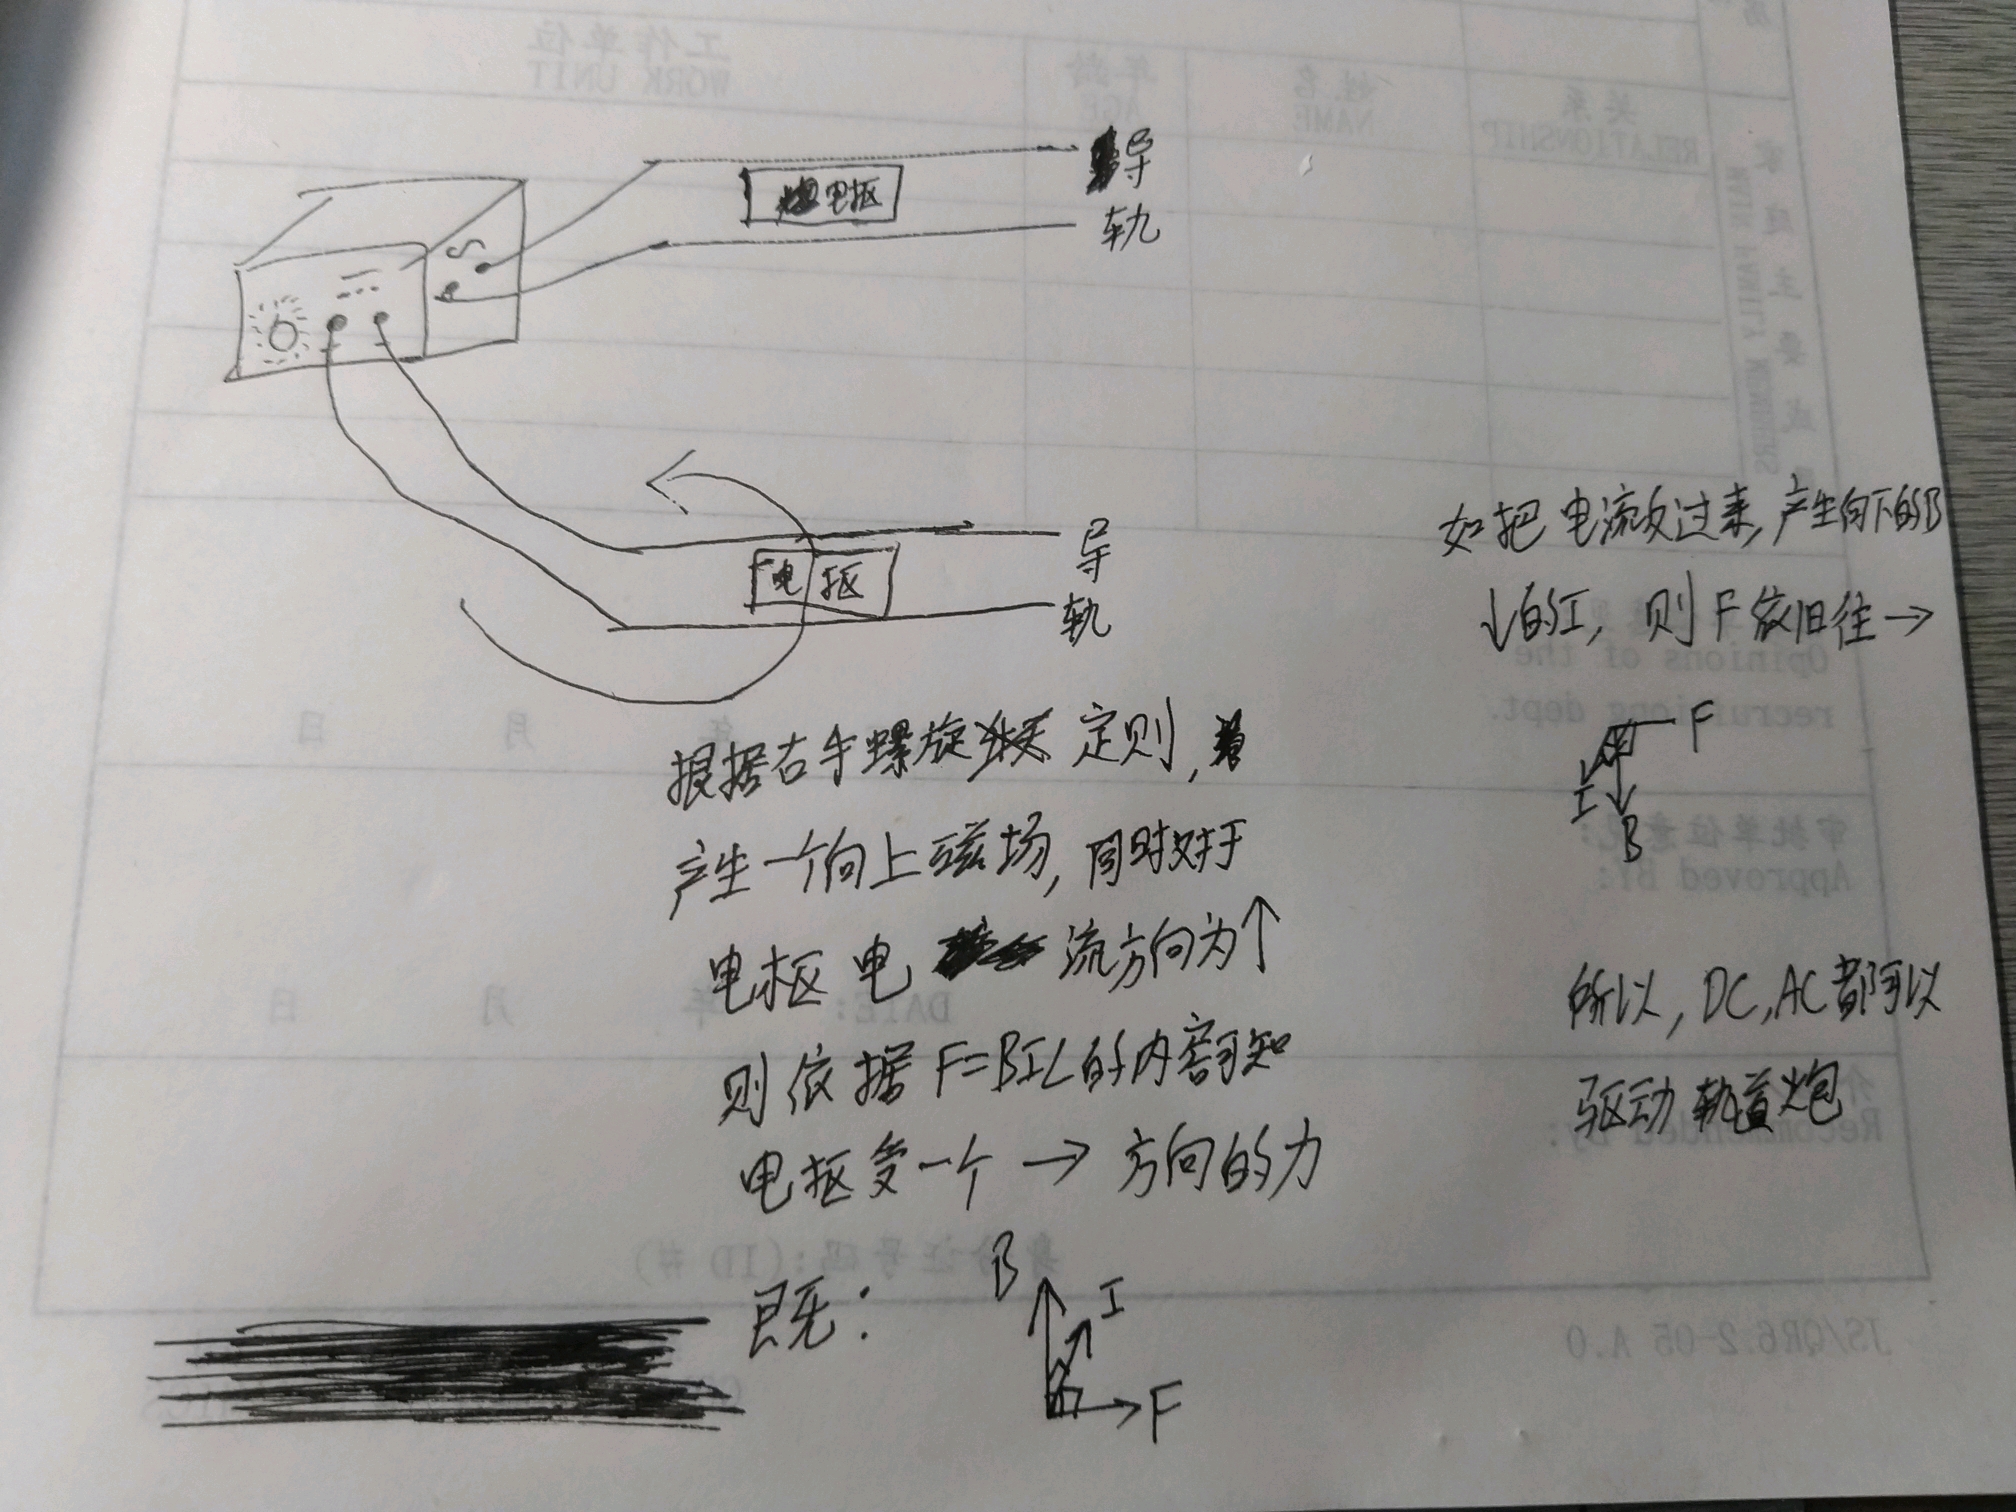 电枢
导
轨
电枢
导
轨
根据右手螺旋定则,
产生一个向上磁场, 同时对于
电枢 电流方向为↑
则依据 F=BIL的内容可知
电枢受一个 → 方向的力
既:
B
I
F
如把电流反过来, 产生向下的B
↓的I, 则 F 依旧往→
F
I
B
所以, DC, AC 都可以
驱动 轨道炮
工作单位
WORK UNIT
年龄
AGE
姓名
NAME
关系
RELATIONSHIP
家庭主要成员
MAIN FAMILY MEMBERS
Opinions of the
recruitions dept.
年 月 日
审批单位意见:
Approved BY:
DATE: 年 月 日
Recommended By:
身份证号码: (ID #)
JS/QR6.2-05 A.0